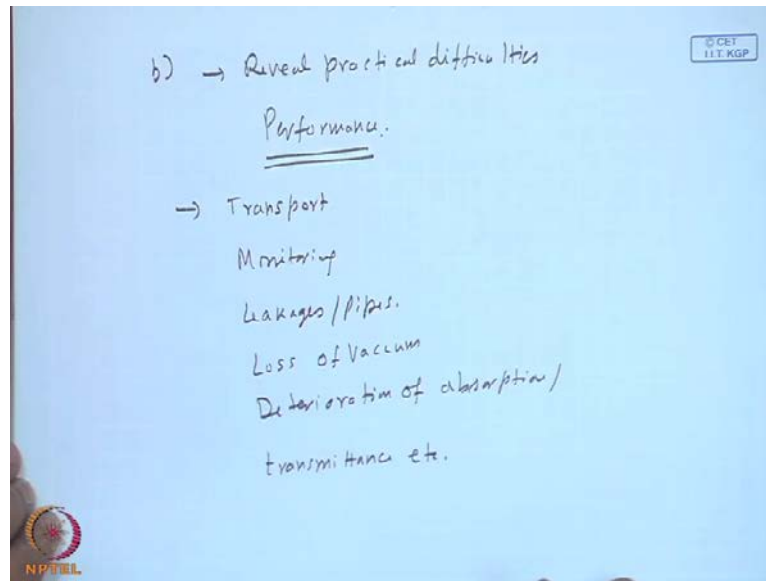 b) → Reveal practical difficulties
© CET
I.I.T. KGP
Performance.
→ Transport
Monitoring
Leakages/Pipes.
Loss of Vaccum
Deterioration of absorption/
transmittance etc.
NPTEL